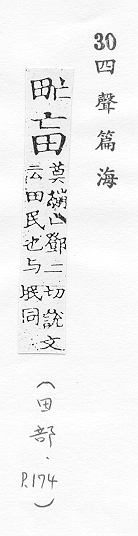 30 四聲篇海
甿
莫 亡鄧二切說文
云田民也与氓同
（田部．P.174）